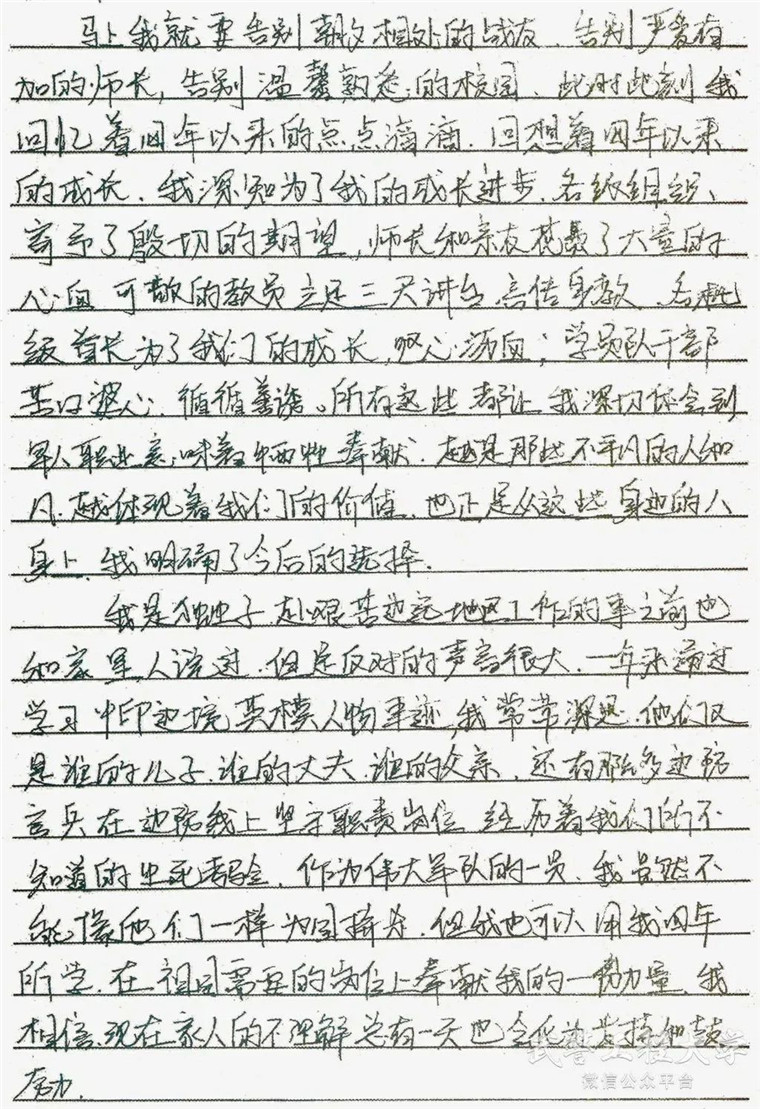 马上我就要告别朝夕相处的战友、告别严爱有
加的师长，告别温馨熟悉的校园、此时此刻我
回忆着四年以来的点点滴滴、回想着四年以来
的成长、我深知为了我的成长进步、各级组织、
寄予了殷切的期望，师长和亲友花费了大量的
心血、可敬的教员立足三尺讲台、言传身教、各
级首长为了我们的成长，呕心沥血；学员队干部
苦口婆心、循循善诱。所有这些都让我深切体会到
军人职业意味着牺牲奉献、越是那些不平凡的人和
越体现着我们的价值、也正是从这些身边的人
身上、我明确了今后的选择.
我是独生子、赴艰苦边远地区工作的事之前也
和家里人谈过、但是反对的声音很大、一年来通过
学习中印边境英模人物事迹，我常常深思、他们又
是谁的儿子、谁的丈夫、谁的父亲、还有那么多边防
官兵在边防线上坚守职责岗位、经历着我们所不
知道的生死考验、作为伟大军队的一员、我虽然不
能像他们一样为国捐身、但我也可以用我四年
所学、在祖国需要的岗位上奉献我的一份力量、我
相信、现在家人的不理解总有一天也会化为支持和鼓
励.
武警工程大学
微信公众平台